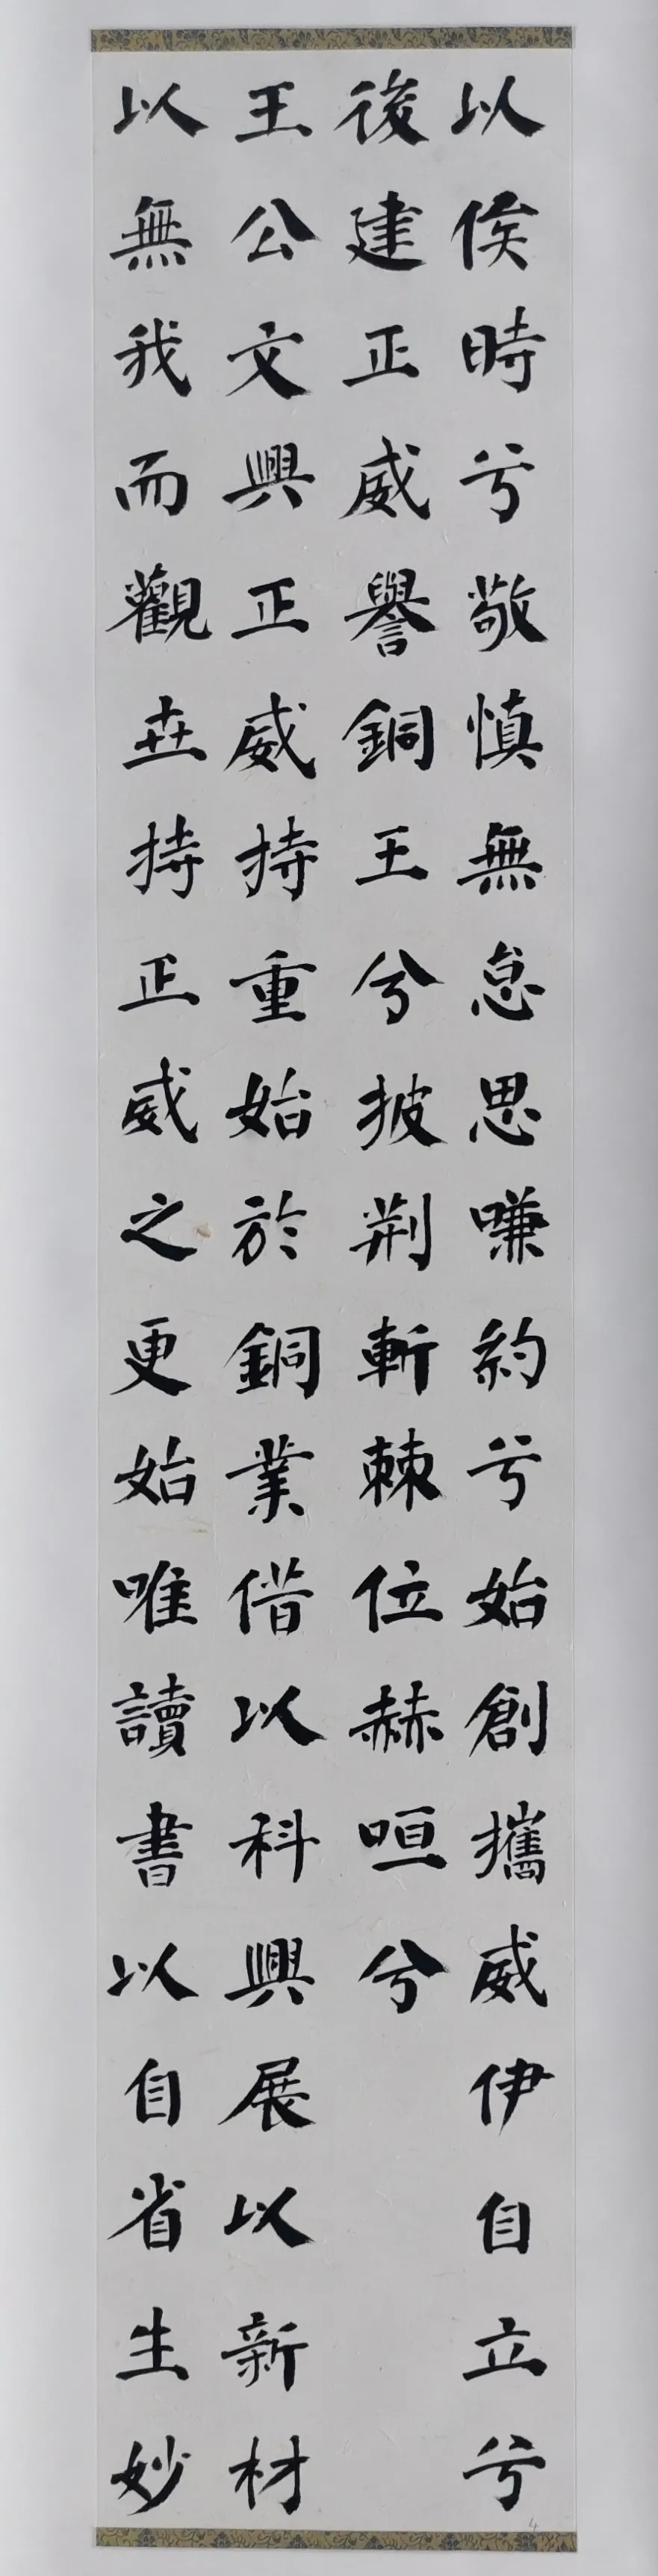 以俟時兮敬慎無怠思嗛約兮始創攜威伊自立兮
後建正威譽銅王兮披荆斬棘位赫咺兮
王公文興正威持重始於銅業借以科興展以新材
以無我而觀世持正威之更始唯讀書以自省生妙
4